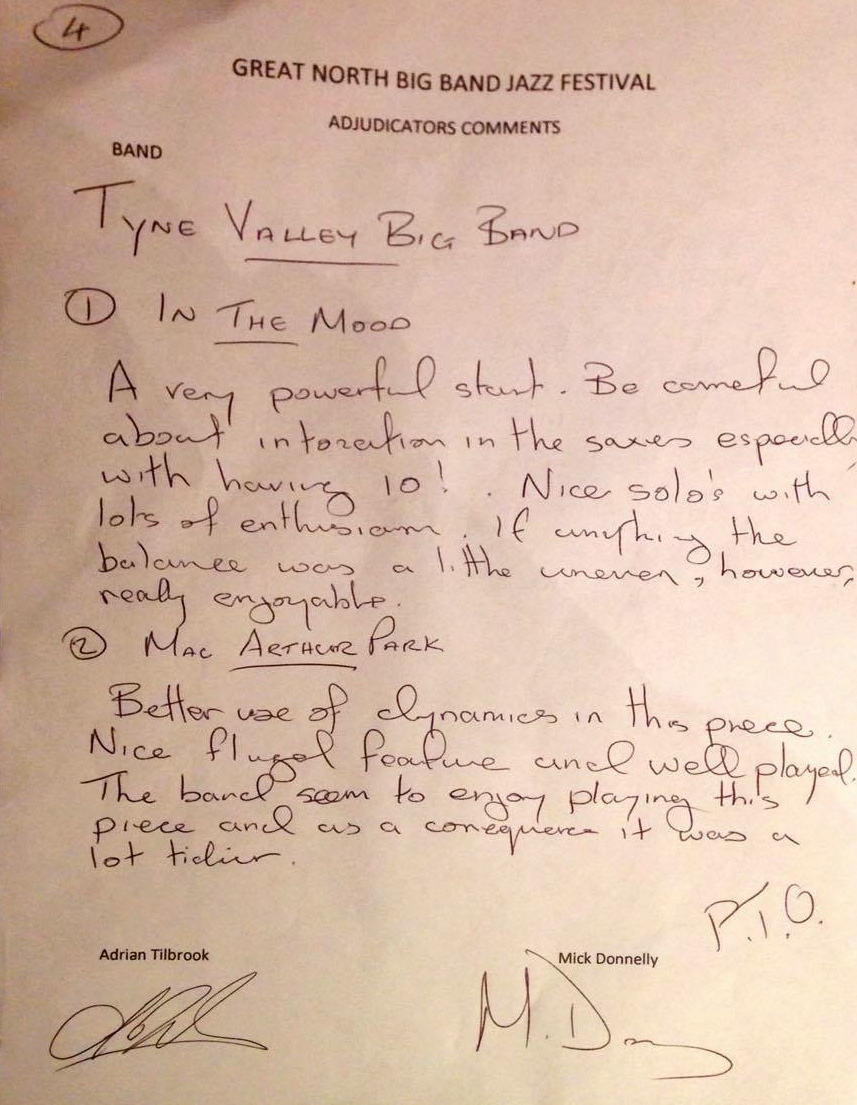 4
GREAT NORTH BIG BAND JAZZ FESTIVAL
ADJUDICATORS COMMENTS
BAND
TYNE VALLEY BIG BAND
① IN THE MOOD
A very powerful start. Be careful
about intonation in the saxes especially
with having 10! . Nice solo's with
lots of enthusiasm. If anything the
balance was a little uneven, however,
really enjoyable.
② MAC ARTHUR PARK
Better use of dynamics in this piece.
Nice flugel feature and well played.
The band seem to enjoy playing this
piece and as a consequence it was a
lot tidier.
P.T.O.
Adrian Tilbrook
Mick Donnelly
M. Don